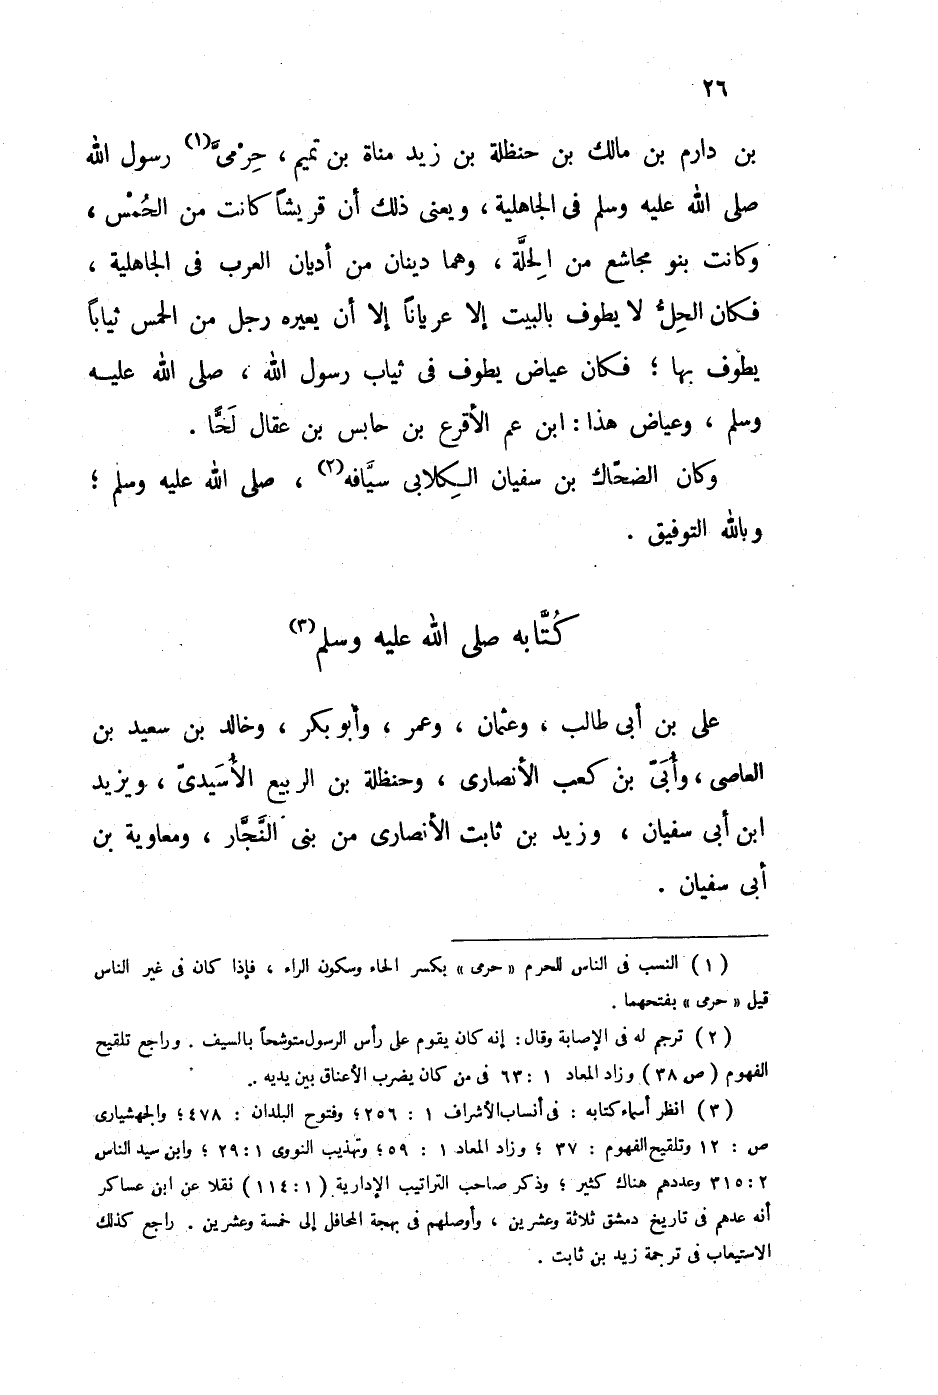 ٢٦
بن دارم بن مالك بن حنظلة بن زيد مناة بن تميم ، حِرْمىَّ(١) رسول الله
صلى الله عليه وسلم فى الجاهلية ، ويعنى ذلك أن قريشاً كانت من الحُمْس ،
وكانت بنو مجاشع من الحِلَّة ، وهما دينان من أديان العرب فى الجاهلية ،
فكان الحِلىُّ لا يطوف بالبيت إلا عرياناً إلا أن يعيره رجل من الحمس ثياباً
يطوف بها ؛ فكان عياض يطوف فى ثياب رسول الله ، صلى الله عليه
وسلم ، وعياض هذا : ابن عم الأقرع بن حابس بن عقال لَحًّا .
وكان الضحّاك بن سفيان الكِلابى سيَّافه(٢) ، صلى الله عليه وسلم ؛
وبالله التوفيق .
كُتَّابه صلى الله عليه وسلم(٣)
على بن أبى طالب ، وعثمان ، وعمر ، وأبو بكر ، وخالد بن سعيد بن
العاصى ، وأُبَىّ بن كعب الأنصارى ، وحنظلة بن الربيع الأُسَيدىّ ، ويزيد
ابن أبى سفيان ، وزيد بن ثابت الأنصارى من بنى النَّجَّار ، ومعاوية بن
أبى سفيان .
(١) النسب فى الناس للحرم « حرمى » بكسر الحاء وسكون الراء ، فإذا كان فى غير الناس
قيل « حرمى » بفتحهما .
(٢) ترجم له فى الإصابة وقال : إنه كان يقوم على رأس الرسول متوشحاً بالسيف . وراجع تلقيح
الفهوم ( ص ٣٨ ) وزاد المعاد ١ : ٦٣ فى من كان يضرب الأعناق بين يديه ..
(٣) انظر أسماء كتابه : فى أنساب الأشراف ١ : ٢٥٦ ؛ وفتوح البلدان : ٤٧٨ ؛ والجهشيارى
ص : ١٢ وتلقيح الفهوم : ٣٧ ؛ وزاد المعاد ١ : ٥٩ ؛ وتهذيب النووى ١ : ٢٩ ؛ وابن سيد الناس
٢ : ٣١٥ وعددهم هناك كثير ؛ وذكر صاحب التراتيب الإدارية ( ١ : ١١٤ ) نقلا عن ابن عساكر
أنه عدهم فى تاريخ دمشق ثلاثة وعشرين ، وأوصلهم فى بهجة المحافل إلى خمسة وعشرين . راجع كذلك
الاستيعاب فى ترجمة زيد بن ثابت .